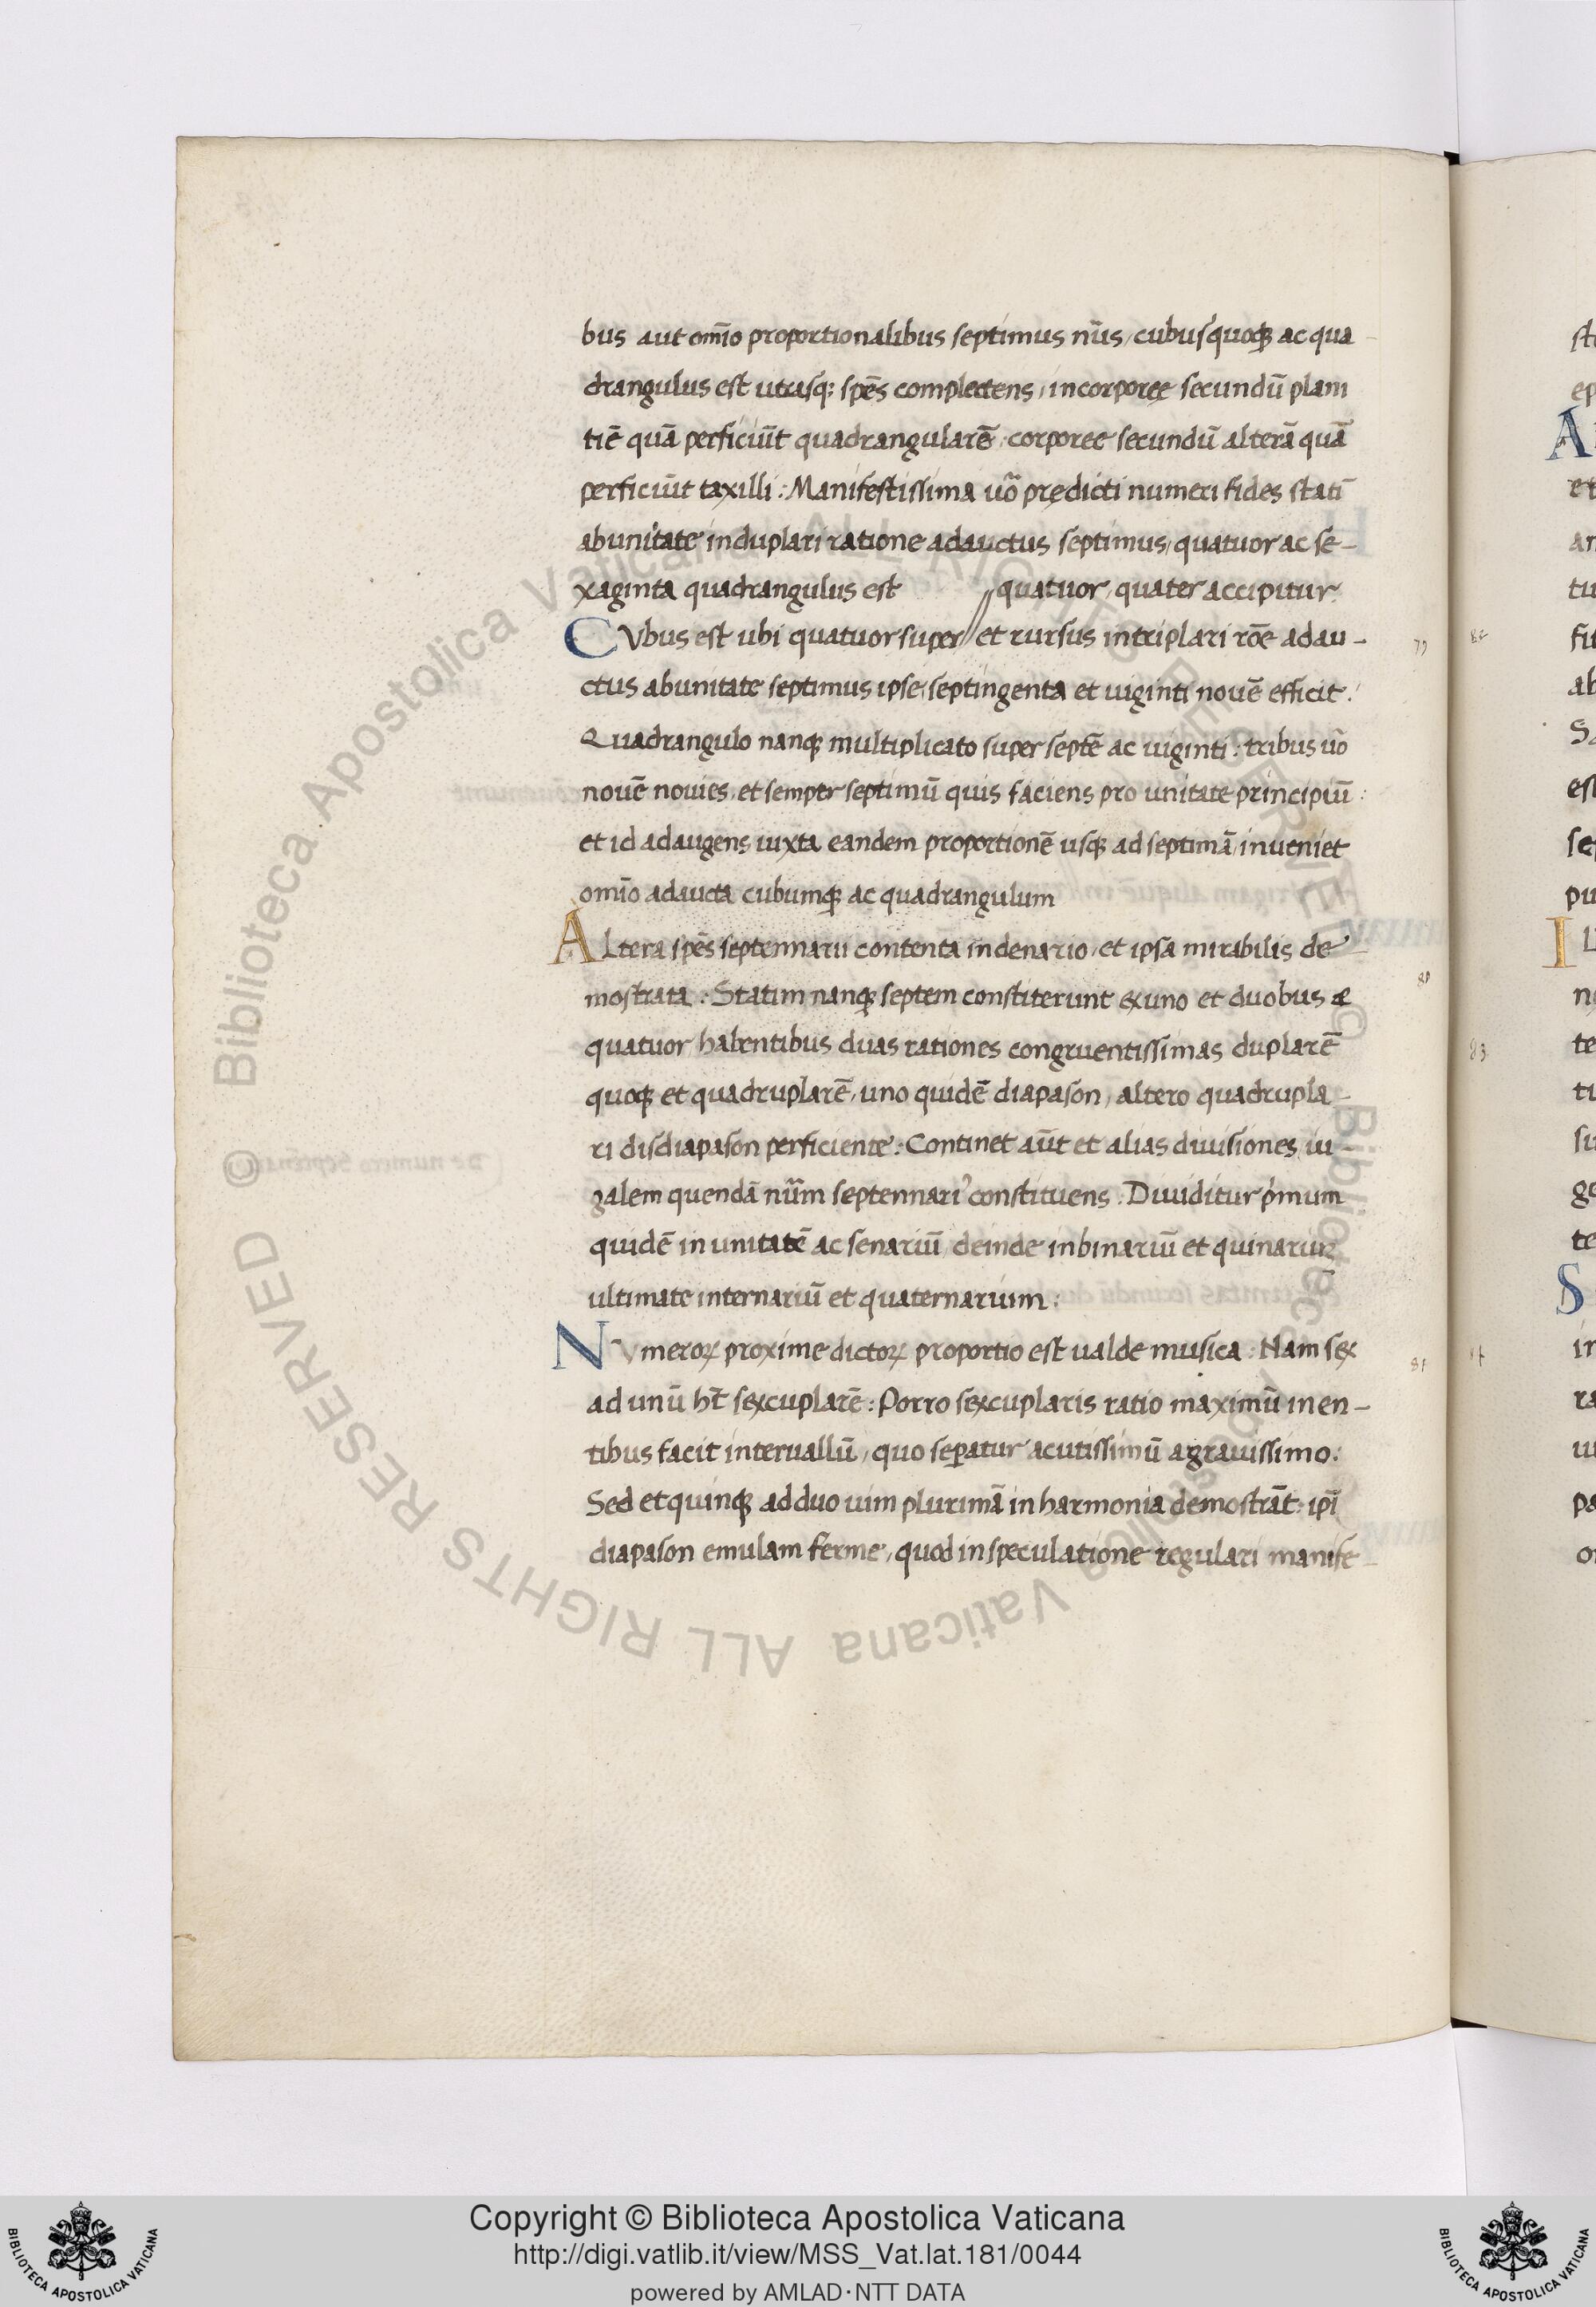 bus aut om̄io proportionalibus septimus nũs, cubus quoqꝫ ac qua
drangulus est utrasqꝫ spēs complectens, incorporeę secundū plani
tiē quā perficiūt quadrangularē, corporee secundū alterā quā
perficiūt taxilli: Manifestissima uõ prędicti numeri fides statī
ab unitate in duplari ratione adauctus septimus, quatuor ac se-
xaginta quadrangulus est // quatuor, quater accipitur
Cvbus est ubi quatuor super // et rursus in triplari rōe adau-
ctus ab unitate septimus ipse, septingenta et uiginti nouē efficit.
Quadrangulo nanqꝫ multiplicato super septē ac uiginti: tribus uõ
nouē nouies, et semper septimū quis faciens pro unitate principiū:
et id adaugens iuxta eandem proportionē usqꝫ ad septimā, inueniet
om̄io adaucta cubumqꝫ ac quadrangulum
Altera spēs septennarii contenta in denario, et ipsa mirabilis de-
mostrata: Statim nanqꝫ septem constiterunt ex uno et duobus æ
quatuor habentibus duas rationes congruentissimas duplarē
quoqꝫ et quadruplarē, uno quidē diapason, altero quadrupla-
ri disdiapason perficiente: Continet aūt et alias diuisiones, iu-
galem quendā nũm septennari⁹ constituens. Diuiditur p̓mum
quidē in unitatē ac senariū, deinde in binariū et quinariū
ultimate in ternariū et quaternarium:
Nvmeroꝝ proxime dictoꝝ proportio est ualde musica: Nam sex
ad unū ht̄ sexcuplarē: Porro sexcuplaris ratio maximū in en-
tibus facit interuallū, quo seꝑatur acutissimū a grauissimo:
Sed et quinqꝫ ad duo uim plurimā in harmonia demostrāt: ip̄i
diapason emulam ferme, quod in speculatione regulari manife-
79
80
81
82
83
Copyright © Biblioteca Apostolica Vaticana
http://digi.vatlib.it/view/MSS_Vat.lat.181/0044
powered by AMLAD·NTT DATA
BIBLIOTECA APOSTOLICA VATICANA
BIBLIOTECA APOSTOLICA VATICANA
© Biblioteca Apostolica Vaticana ALL RIGHTS RESERVED © Biblioteca Apostolica Vaticana ALL RIGHTS RESERVED